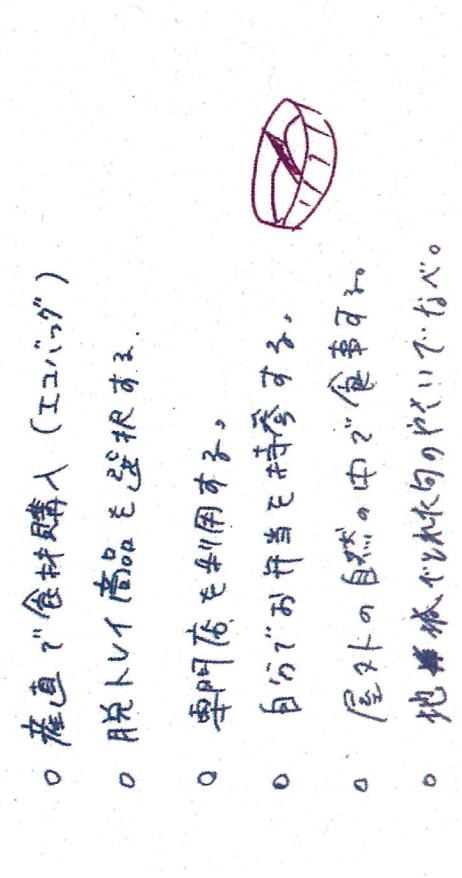 ○ 産直で食材購入(エコバッグ)
○ 脱トレイ商品を選択する.
○ 専門店を利用する。
○ 自分でお弁当を持参する。
○ 屋外の自然の中で食事する。
○ 地域でとれた旬のやさいでなべ。